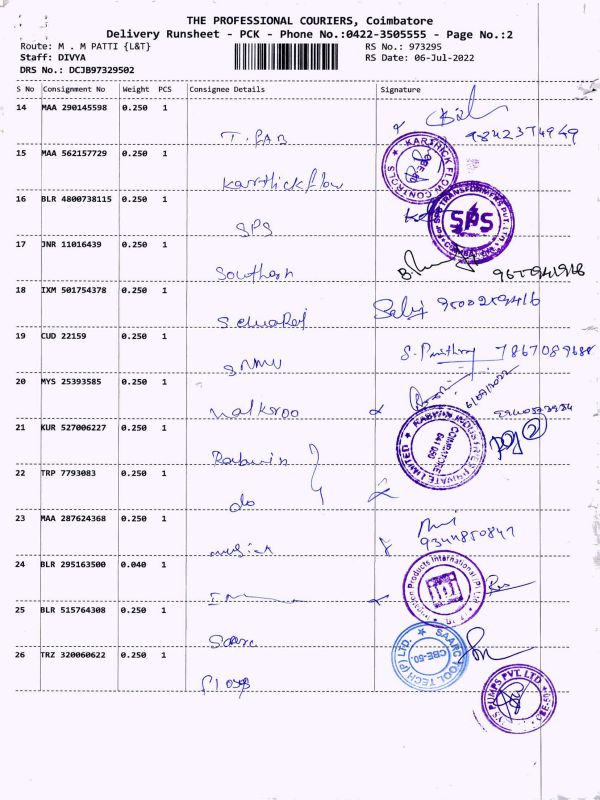 THE PROFESSIONAL COURIERS, Coimbatore
Delivery Runsheet - PCK - Phone No.:0422-3505555 - Page No.:2
Route: M . M PATTI {L&T} RS No.: 973295
Staff: DIVYA RS Date: 06-Jul-2022
DRS No.: DCJB97329502
S No Consignment No Weight PCS Consignee Details Signature
14 MAA 290145598 0.250 1
T. FAB 9842374949
15 MAA 562157729 0.250 1
KARTHICK FLOW CONTROLS
Karthickflow
16 BLR 4800738115 0.250 1
For SPS TRANSFORMERS PVT. LTD.
SPS
COIMBATORE
SPS
17 JNR 11016439 0.250 1
Southern
18 IXM 501754378 0.250 1
9500259416
19 CUD 22159 0.250 1
S. 7867089688
SNMV
20 MYS 25393585 0.250 1
Malkroo
21 KUR 527006227 0.250 1
RABWIN INDUSTRIES PRIVATE LIMITED
COIMBATORE
Rabwin
22 TRP 7793083 0.250 1
do
23 MAA 287624368 0.250 1
9344850847
24 BLR 295163500 0.040 1
Products International (P) Ltd
25 BLR 515764308 0.250 1
SAARC TOOL TECH (P) LTD.
CBE-50.
Saarc
26 TRZ 320060622 0.250 1
PUMPS PVT. LTD.